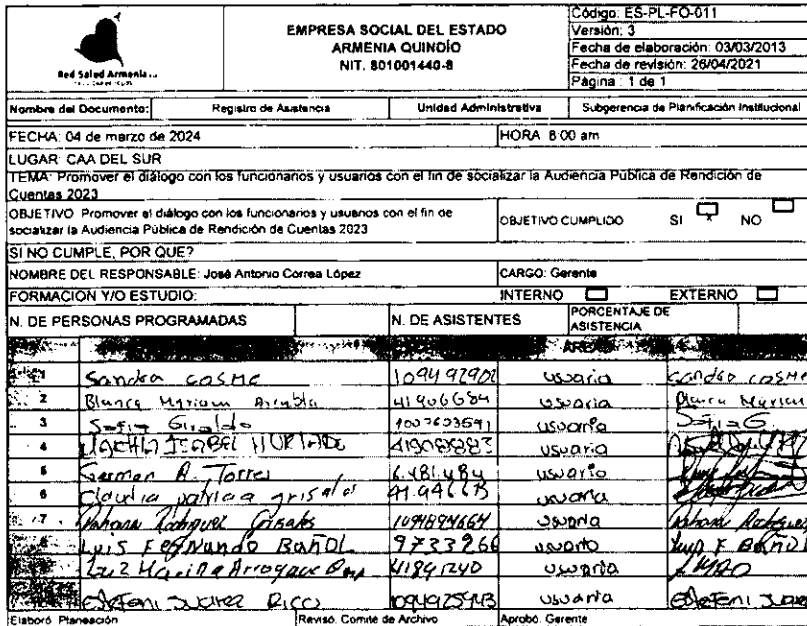 Red Salud Armenia
EMPRESA SOCIAL DEL ESTADO
ARMENIA QUINDÍO
NIT. 801001440-8
Código: ES-PL-FO-011
Versión: 3
Fecha de elaboración: 03/03/2013
Fecha de revisión: 26/04/2021
Página : 1 de 1
Nombre del Documento: Registro de Asistencia Unidad Administrativa Subgerencia de Planificación Institucional
FECHA: 04 de marzo de 2024 HORA 8:00 am
LUGAR: CAA DEL SUR
TEMA: Promover el diálogo con los funcionarios y usuarios con el fin de socializar la Audiencia Pública de Rendición de
Cuentas 2023
OBJETIVO Promover el diálogo con los funcionarios y usuarios con el fin de
socializar la Audiencia Pública de Rendición de Cuentas 2023
OBJETIVO CUMPLIDO SI x NO
SI NO CUMPLE, POR QUE?
NOMBRE DEL RESPONSABLE: José Antonio Correa López CARGO: Gerente
FORMACION Y/O ESTUDIO: INTERNO EXTERNO
N. DE PERSONAS PROGRAMADAS N. DE ASISTENTES PORCENTAJE DE
ASISTENCIA
1 Sandra COSME 109492902 usuaria Sandra COSME
2 Blanca Myriam 41906684 usuaria Blanca Myriam
3 Sofia Giraldo usuaria Sofia G
4 ISABEL HURTADO usuaria
5 German A. Torres 6.481.484 usuario
6 Claudia patricia grisales usuaria
7 Johana Rodriguez Grisales 1094894664 usuaria Johana Rodriguez
Luis FERNANDO BAÑOL 9733966 usuario Luis F BAÑOL
Luz Marina 41891240 usuaria
Estefani JUAREZ RICO usuaria Estefani
Elaboró. Planeación Revisó. Comité de Archivo Aprobó. Gerente